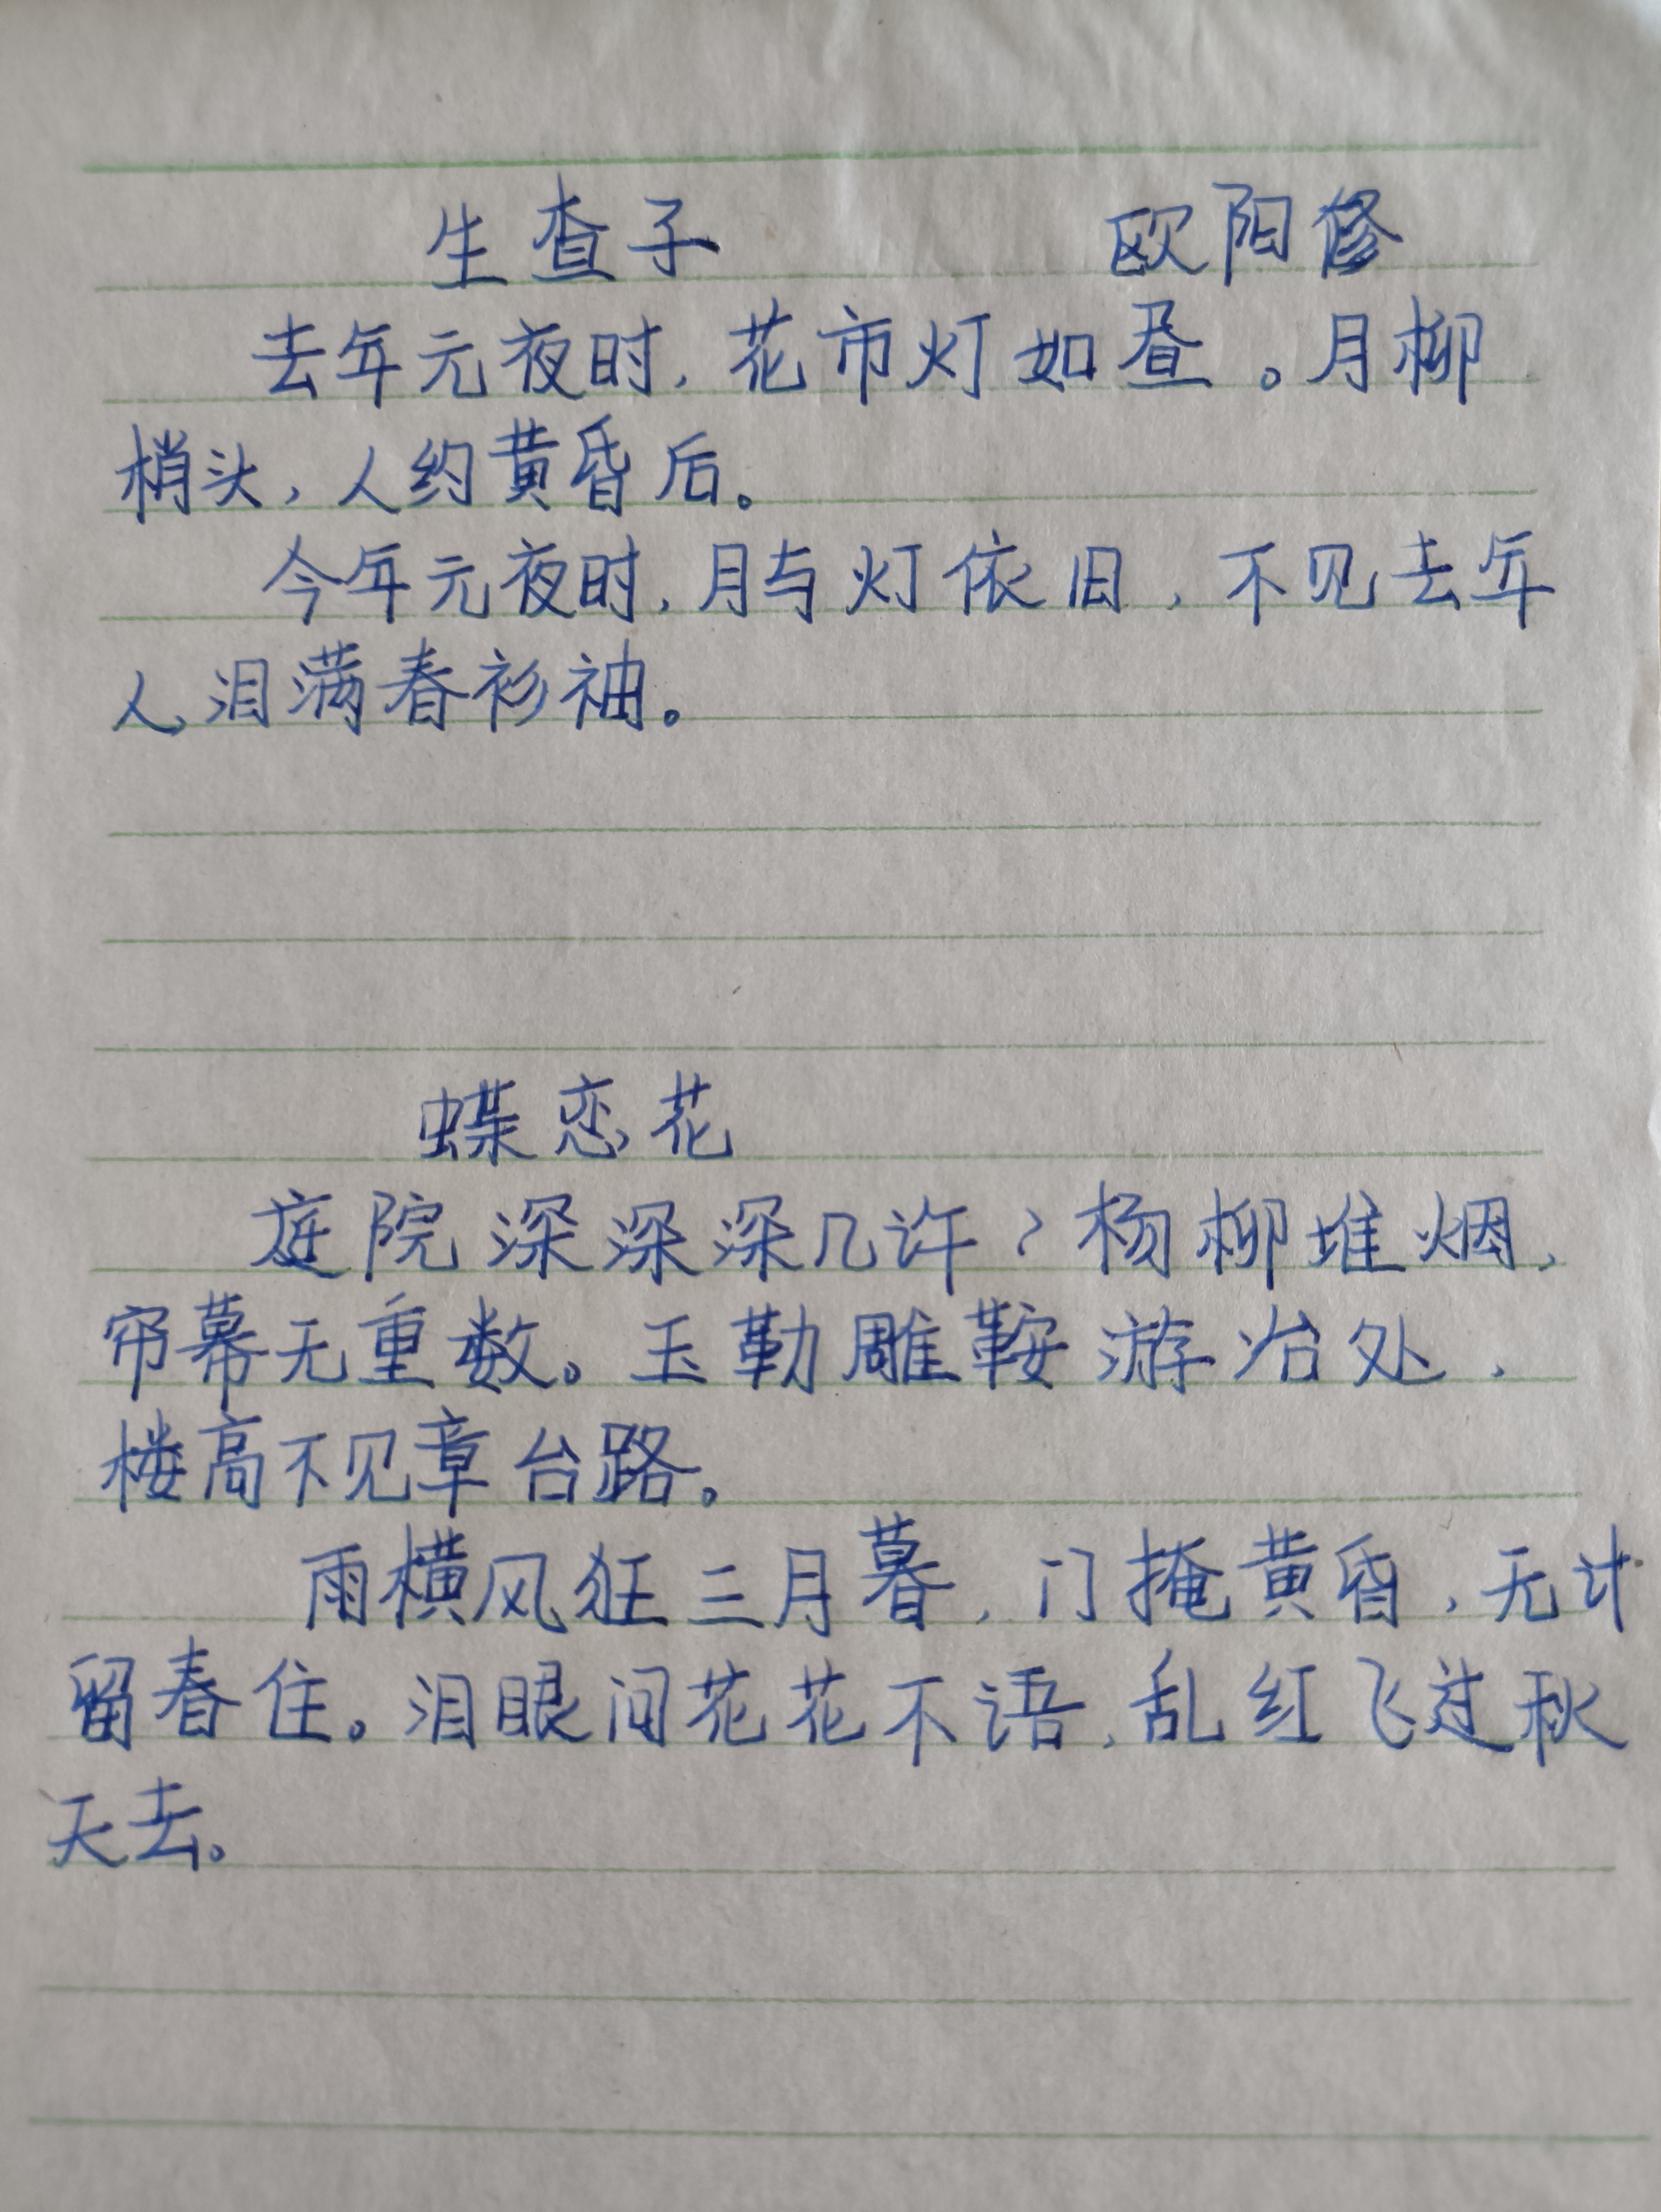 生查子 欧阳修
去年元夜时，花市灯如昼。月柳
梢头，人约黄昏后。
今年元夜时，月与灯依旧，不见去年
人，泪满春衫袖。
蝶恋花
庭院深深深几许？杨柳堆烟，
帘幕无重数。玉勒雕鞍游冶处，
楼高不见章台路。
雨横风狂三月暮，门掩黄昏，无计
留春住。泪眼问花花不语，乱红飞过秋
天去。